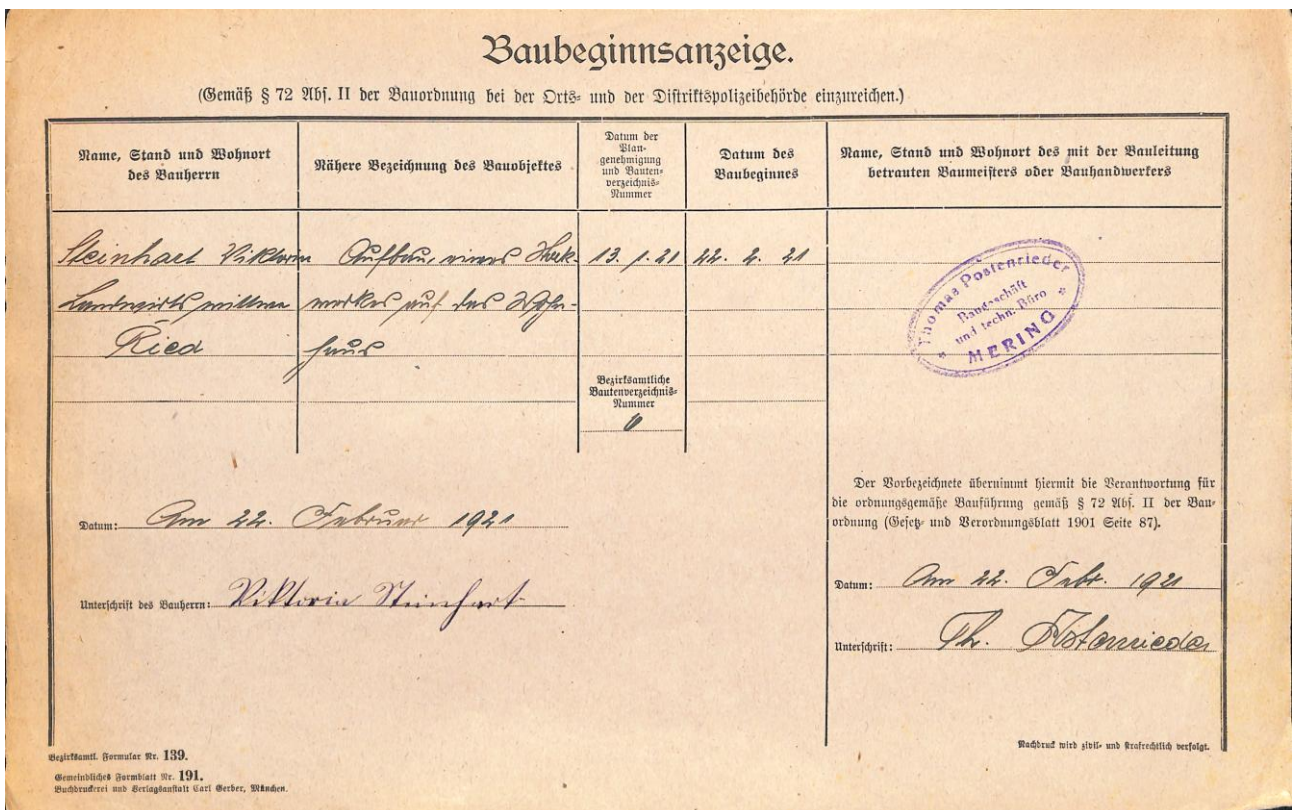 Baubeginnsanzeige.
(Gemäß § 72 Abs. II der Bauordnung bei der Orts- und der Distriktspolizeibehörde einzureichen.)
Name, Stand und Wohnort
des Bauherrn
Nähere Bezeichnung des Bauobjektes
Datum der
Plan-
genehmigung
und Bauten-
verzeichnis-
Nummer
Datum des
Baubeginnes
Name, Stand und Wohnort des mit der Bauleitung
betrauten Baumeisters oder Bauhandwerkers
Steinhart Viktoria
Landwirtswittwe
Ried
Aufbau eines Stock-
werkes auf das Wohn-
haus
13. 1. 21
22. 2. 21
Bezirksamtliche
Bautenverzeichnis-
Nummer
Thomas Postenrieder
Baugeschäft
und techn. Büro
* MERING *
Datum: Am 22. Februar 1921
Unterschrift des Bauherrn: Viktoria Steinhart
Der Vorbezeichnete übernimmt hiermit die Verantwortung für
die ordnungsgemäße Bauführung gemäß § 72 Abs. II der Bau-
ordnung (Gesetz- und Verordnungsblatt 1901 Seite 87).
Datum: Am 22. Febr. 1921
Unterschrift: Th. Postenrieder
Bezirksamtl. Formular Nr. 139.
Gemeindliches Formblatt Nr. 191.
Buchdruckerei und Verlagsanstalt Carl Gerber, München.
Nachdruck wird zivil- und strafrechtlich verfolgt.